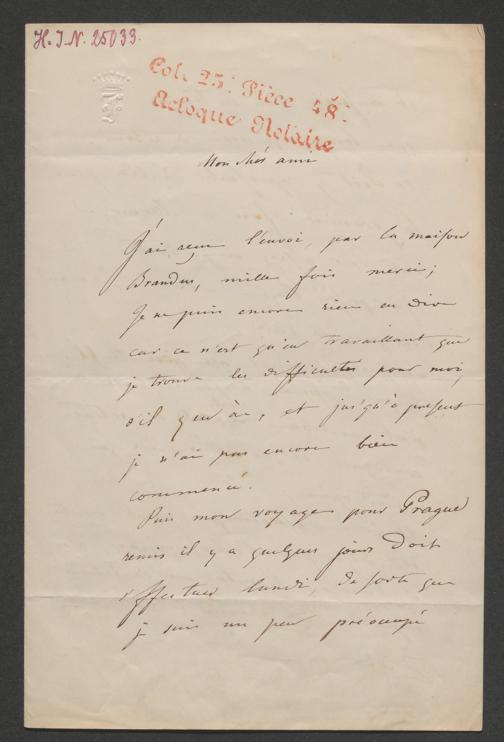 H. I. N. 25033.
Cot. 25e. Pièce 48e.
Acloque Notaire
Mon chér ami
J'ai reçu l'envoi, par la maison
Brandus, mille fois merci;
Je ne puis encore rien en dire
car ce n'est qu'en travaillant que
je trouve les difficultés pour moi,
s'il y en à, et jusqu'à présent
je n'ai pas encore bien
commencé.
Puis mon voyage pour Prague
remis il y a quelques jours doit
s'effectuer lundi, de sorte que
je suis un peu préoccupé